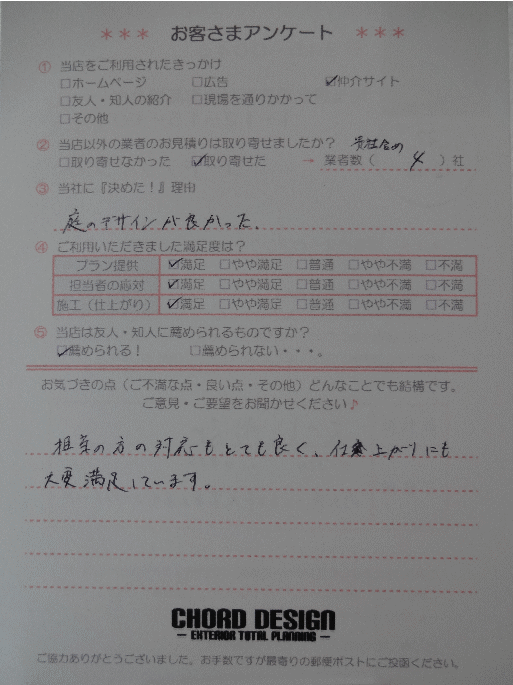 *** お客さまアンケート ***
① 当店をご利用されたきっかけ
□ホームページ □広告 ☑仲介サイト
□友人・知人の紹介 □現場を通りかかって
□その他
② 当店以外の業者のお見積りは取り寄せましたか? 貴社含め
□取り寄せなかった ☑取り寄せた → 業者数( 4 )社
③ 当社に『決めた!』理由
庭のデザインが良かった.
④ ご利用いただきました満足度は?
プラン提供 ☑満足 □やや満足 □普通 □やや不満 □不満
担当者の応対 ☑満足 □やや満足 □普通 □やや不満 □不満
施工(仕上がり) ☑満足 □やや満足 □普通 □やや不満 □不満
⑤ 当店は友人・知人に薦められるものですか?
☑薦められる! □薦められない・・・。
お気づきの点(ご不満な点・良い点・その他)どんなことでも結構です。
ご意見・ご要望をお聞かせください♪
担当の方の対応もとても良く、仕上がりにも
大変満足しています。
CHORD DESIGN
― EXTERIOR TOTAL PLANNING ―
ご協力ありがとうございました。お手数ですが最寄りの郵便ポストにご投函ください。